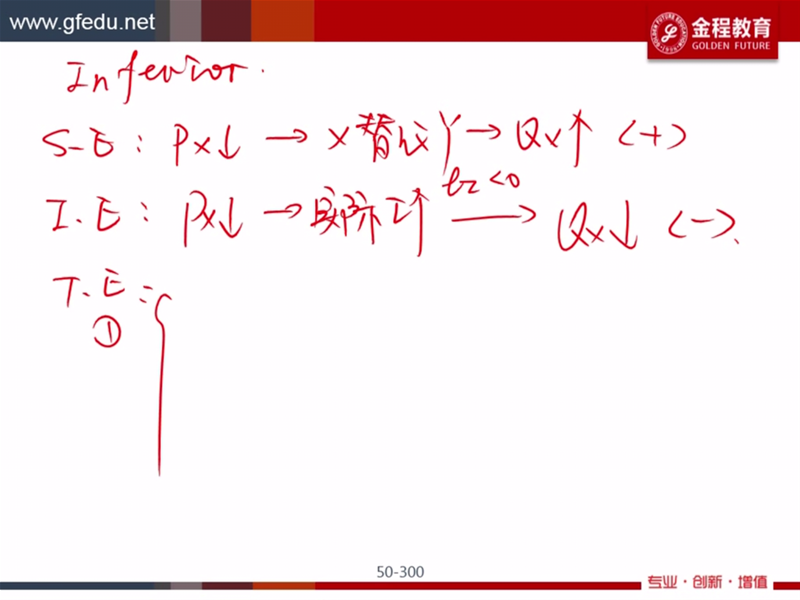 www.gfedu.net
金程教育
GOLDEN FUTURE
Inferior.
S-E: Px↓ → X替代Y → Qx↑ (+)
I.E: Px↓ → 实际I↑ → Qx↓ (-).
εI<0
T.E:
①
50-300
专业·创新·增值